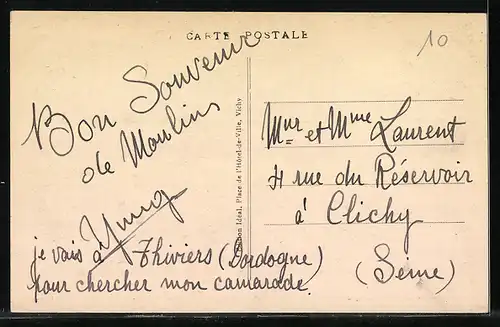 CARTE POSTALE
10
Bon Souvenir
de Moulins
je vais à Thiviers (Dordogne)
pour chercher mon camarade.
Idéal, Place de l'Hôtel-de-Ville, Vichy
Mnr et Mme Laurent
4 rue du Réservoir
à Clichy
(Seine)